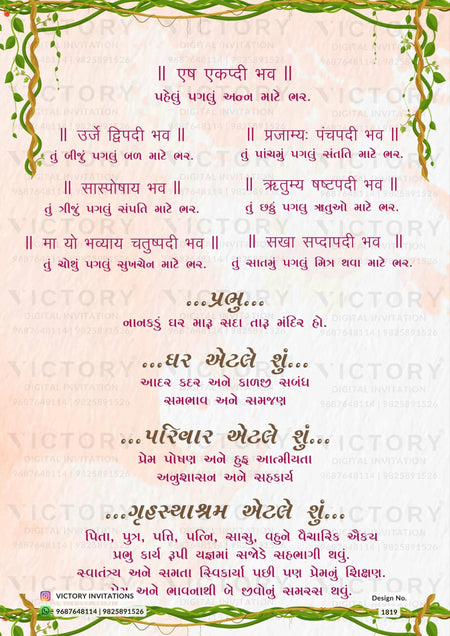 ॥ एष एकप्दी भव ॥
પહેલું પગલું અન્ન માટે ભર.
॥ उर्जे द्विपदी भव ॥
તું બીજું પગલું બળ માટે ભર.
॥ प्रजाम्यः पंचपदी भव ॥
તું પાંચમું પગલું સંતતિ માટે ભર.
॥ सास्पोषाय भव ॥
તું ત્રીજું પગલું સંપતિ માટે ભર.
॥ ऋतुम्य षष्टपदी भव ॥
તું છઠ્ઠું પગલુ ઋતુઓ માટે ભર.
॥ मा यो भव्याय चतुष्पदी भव ॥
તું ચોથું પગલું સુખચેન માટે ભર.
॥ सखा सप्दापदी भव ॥
તું સાતમું પગલું મિત્ર થવા માટે ભર.
...પ્રભુ...
નાનકડું ઘર મારૂ સદા તારૂ મંદિર હો.
...ઘર એટલે શું...
આદર કદર અને કાળજી સબંધ
સમભાવ અને સમજણ
...પરિવાર એટલે શું...
પ્રેમ પોષણ અને હુફ આત્મીયતા
અનુશાસન અને સહકાર્ય
...ગૃહસ્થાશ્રમ એટલે શું...
પિતા, પુત્ર, પતિ, પત્નિ, સાસુ, વહુને વૈચારિક ઐકય
પ્રભુ કાર્ય રૂપી યજ્ઞમાં સજોડે સહભાગી થવું.
સ્વાતંત્ર્ય અને સમતા સ્વિકાર્યા પછી પણ પ્રેમનું શિક્ષણ.
અને ભાવનાથી બે જીવોનું સમરસ થવું.
VICTORY INVITATIONS
9687648114 | 9825891526
Design No.
1819
VICTORY
DIGITAL INVITATION
9687648114 | 9825891526